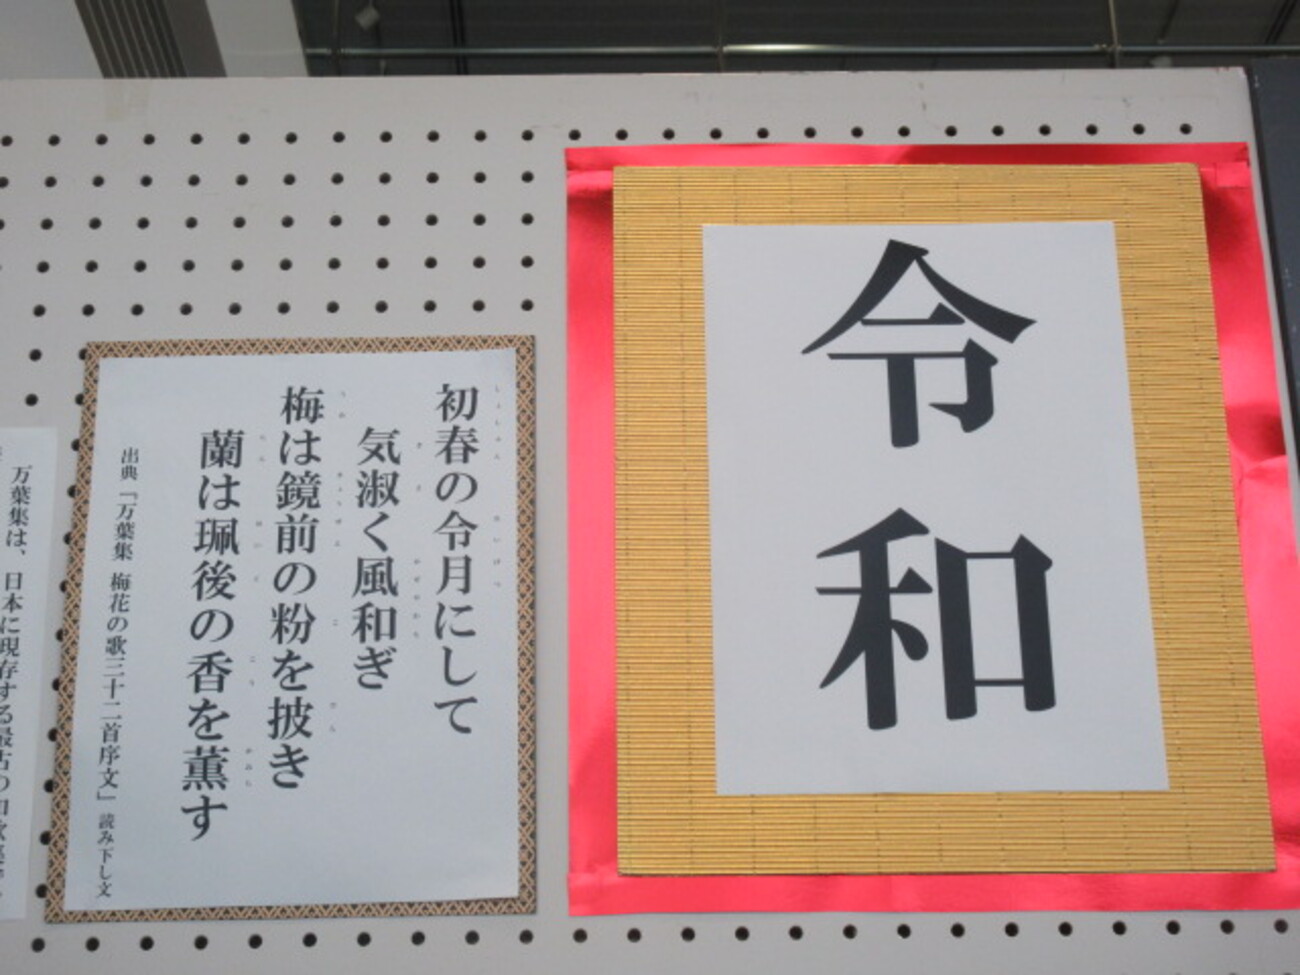 令和
初春の令月にして
気淑く風和ぎ
梅は鏡前の粉を披き
蘭は珮後の香を薫す
出典「万葉集 梅花の歌三十二首序文」読み下し文
万葉集は、日本に現存する最古の和歌集